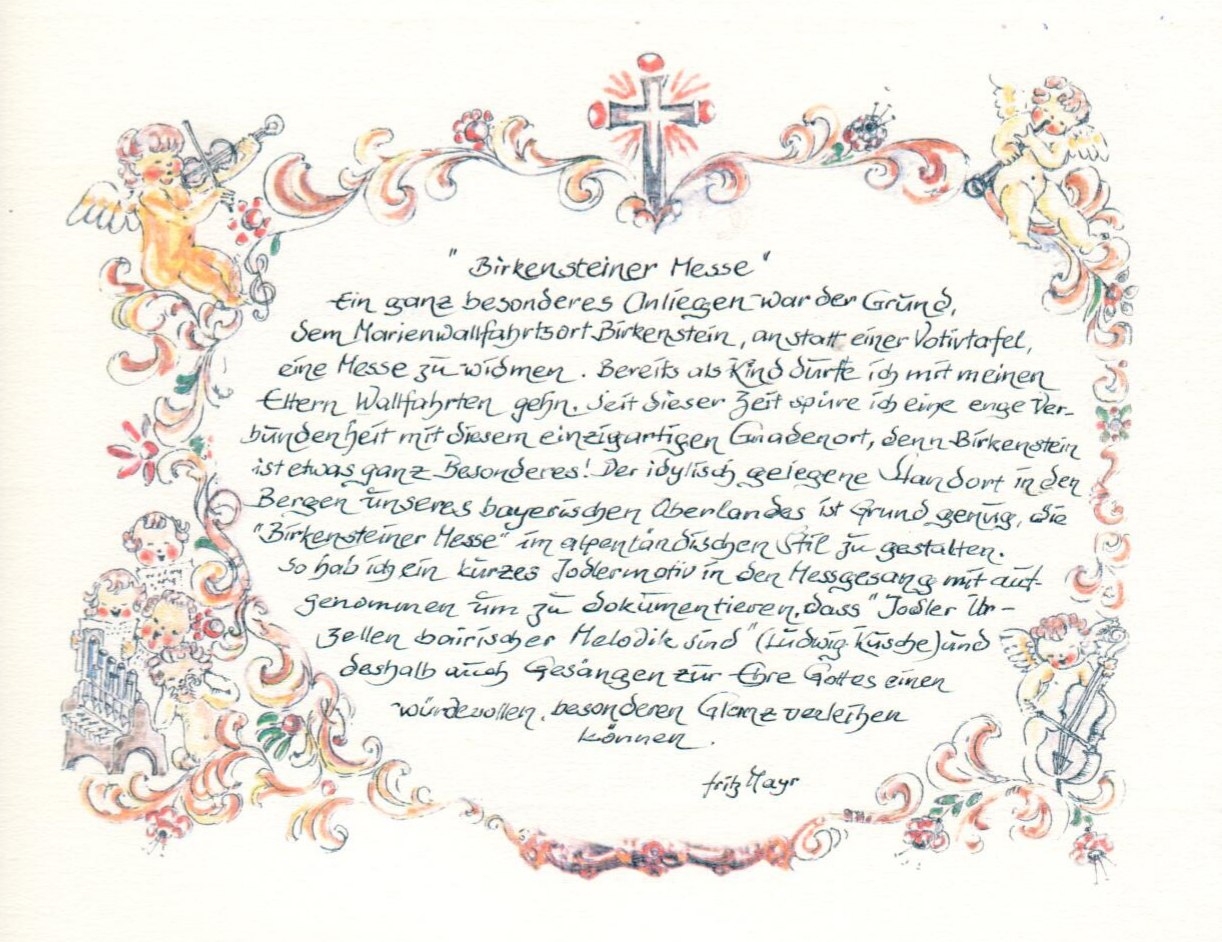 "Birkensteiner Messe"
Ein ganz besonderes Anliegen war der Grund,
dem Marienwallfahrtsort Birkenstein, anstatt einer Votivtafel,
eine Messe zu widmen. Bereits als Kind durfte ich mit meinen
Eltern Wallfahrten gehn. Seit dieser Zeit spüre ich eine enge Ver-
bundenheit mit diesem einzigartigen Gnadenort, denn Birkenstein
ist etwas ganz Besonderes! Der idylisch gelegene Standort in den
Bergen unseres bayerischen Oberlandes ist Grund genug, die
"Birkensteiner Messe" im alpenländischen Stil zu gestalten.
So hab ich ein kurzes Jodlermotiv in den Messgesang mit auf-
genommen um zu dokumentieren, dass "Jodler Ur-
zellen bairischer Melodik sind" (Ludwig Kusche) und
deshalb auch Gesängen zur Ehre Gottes einen
würdevollen, besonderen Glanz verleihen
können.
Fritz Mayr